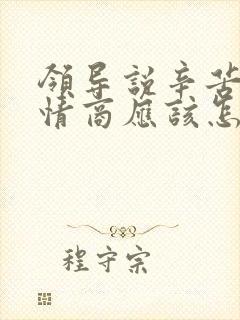 領导説辛苦
情商應該怎
程守宗